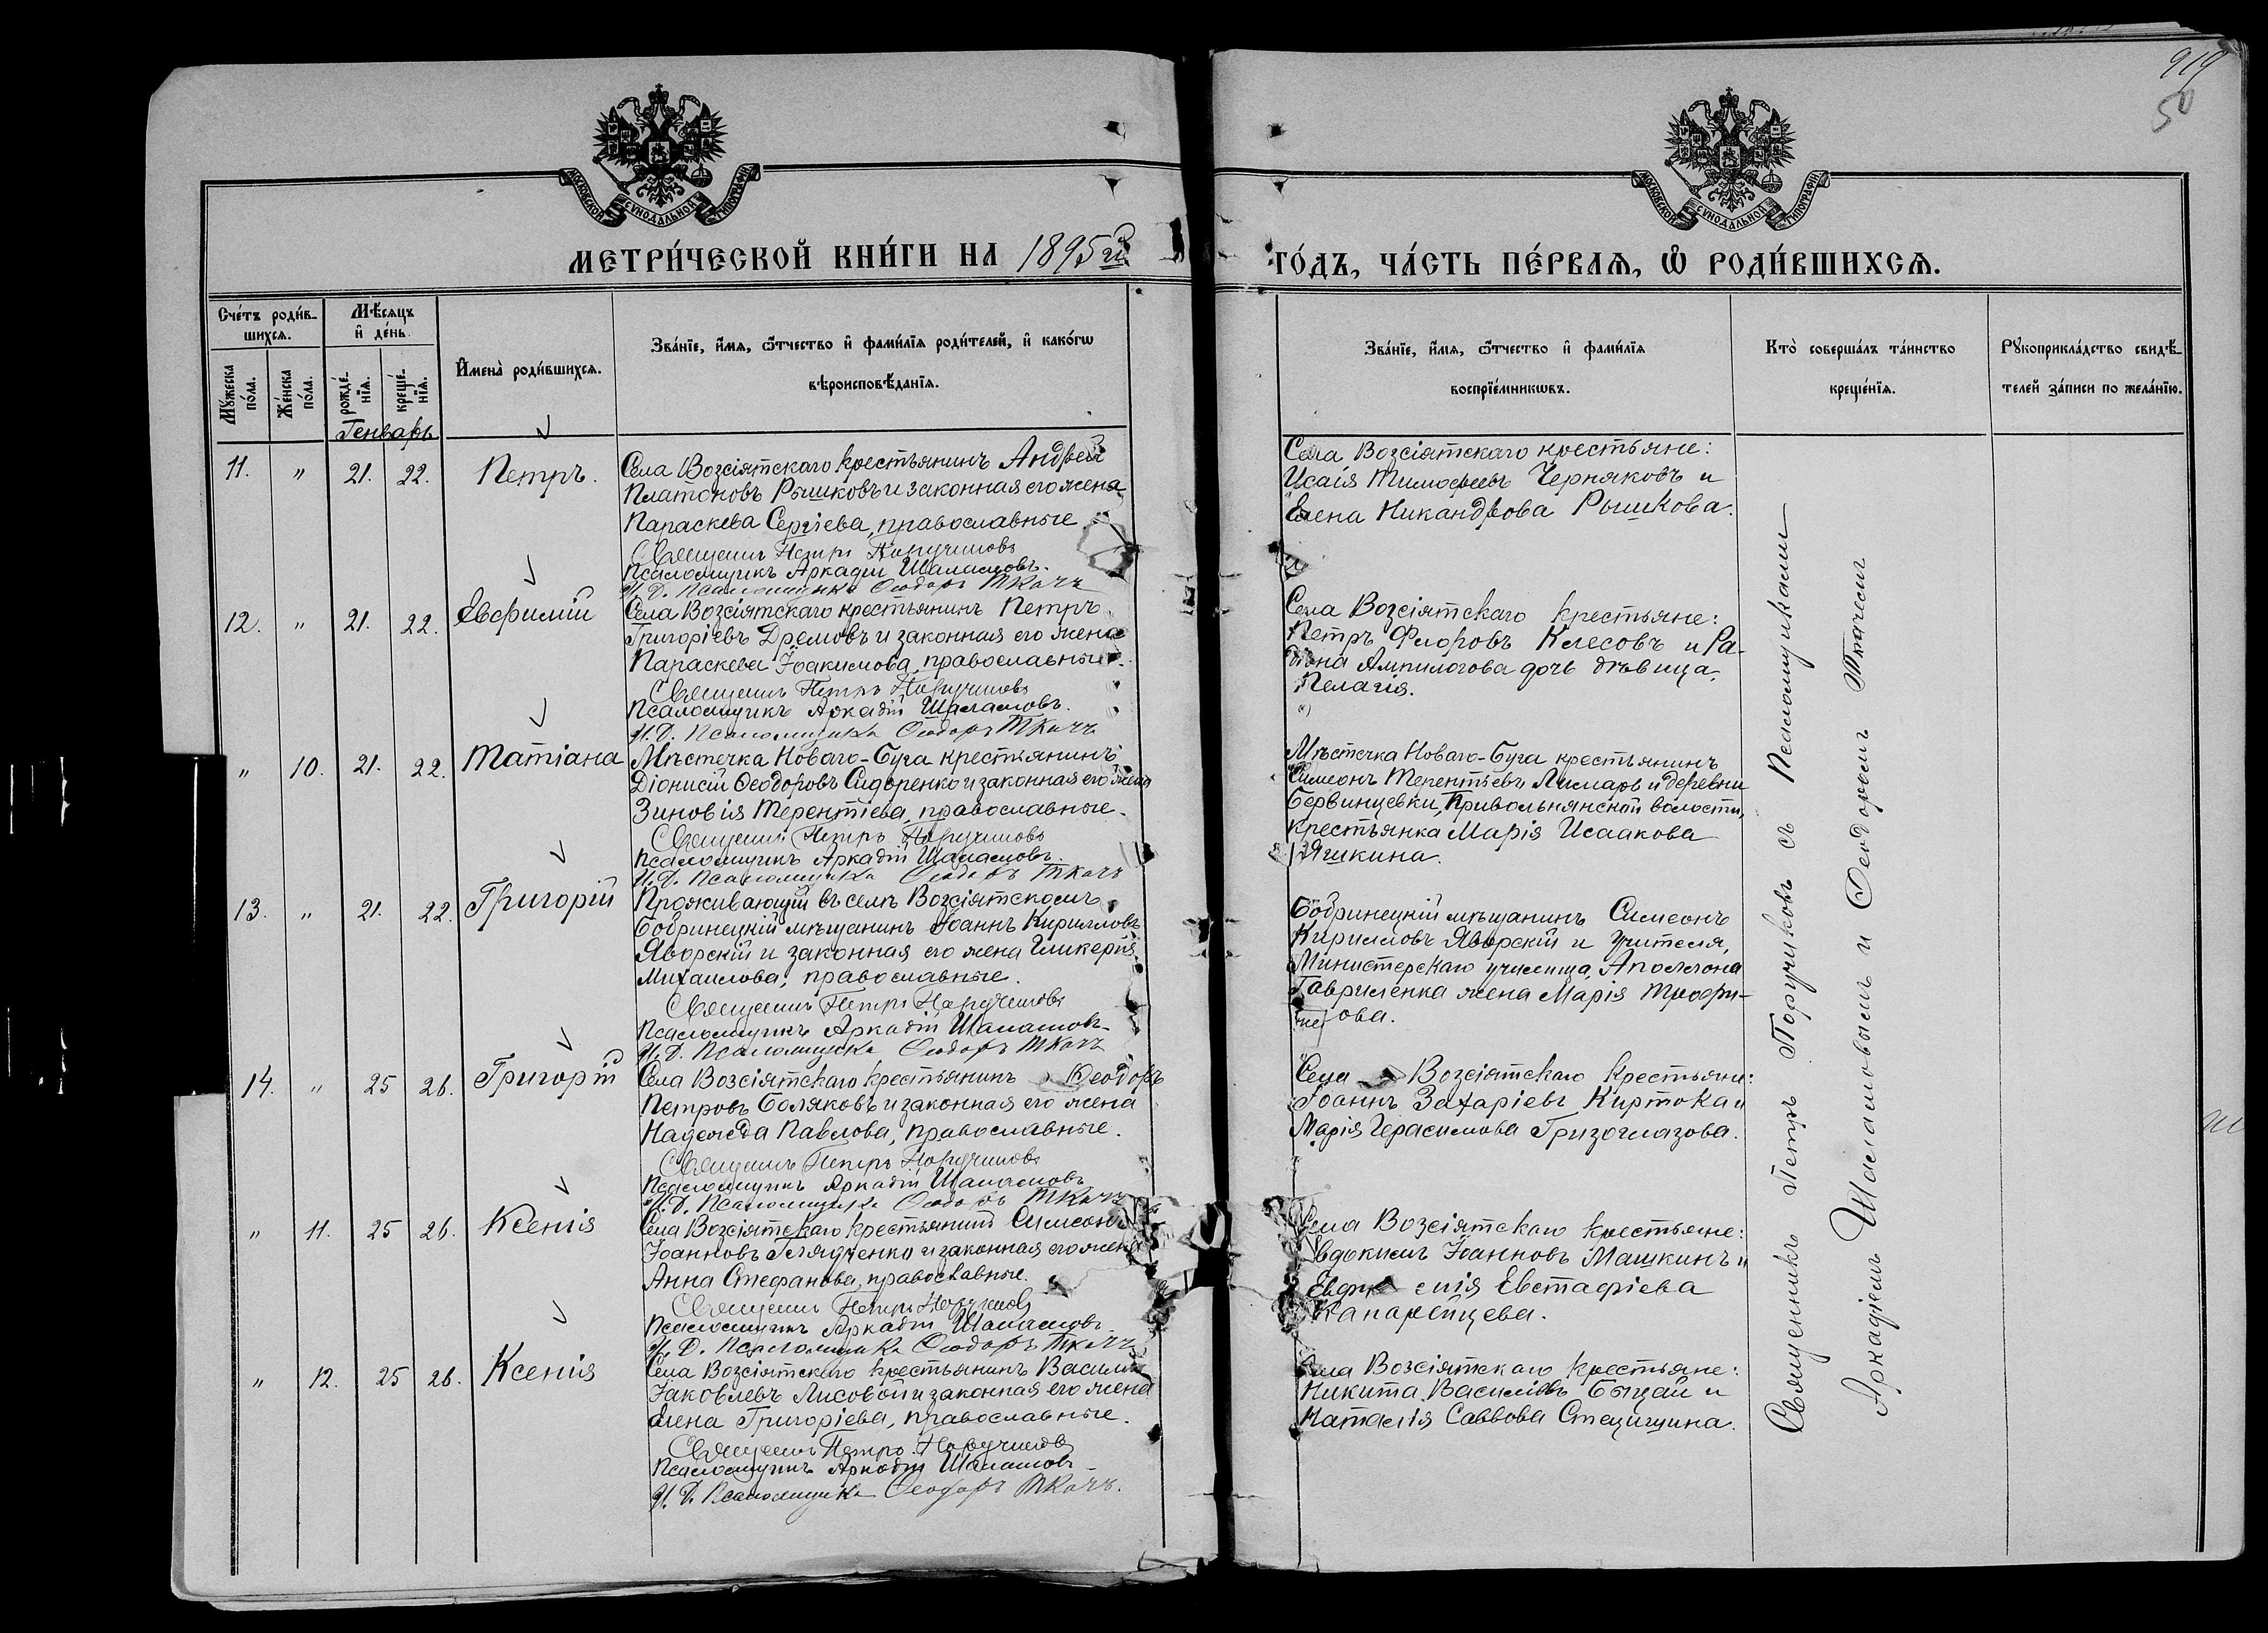 919
50
МОСКОВСКОЙ СѴНОДАЛЬНОЙ ТИПОГРАФІИ
МОСКОВСКОЙ СѴНОДАЛЬНОЙ ТИПОГРАФІИ
МЕТРИ́ЧЕСКОЙ КНИ́ГИ НА 1895й
ГО́ДЪ, ЧА́СТЬ ПЕ́РВАЯ, Ѡ РОДИ́ВШИХСЯ.
Сче́тъ роди́в-
шихся.
Мѣ́сяцъ
и де́нь.
Му́жеска по́ла.
Же́нска по́ла.
рожде́нїя.
креще́нїя.
И҆мена̀ роди́вшихся.
Зва́нїе, и҆́мя, ѻ҆́тчество и҆ фами́лїя роди́телей, и҆ како́гѡ
вѣроисповѣ́данїя.
Зва́нїе, и҆́мя, ѻ҆́тчество и҆ фами́лїя
воспрїе́мникѡвъ.
Кто̀ соверша́лъ та́инство
креще́нїя.
Рꙋкоприкла́дство свидѣ́-
телей за́писи по жела́нїю.
Генварь
11. " 21. 22. Петръ.
Села Возсіятскаго крестьянинъ Андрей
Платоновъ Рышковъ и законная его жена
Параскева Сергіева, православные
Священникъ Петръ Поручиковъ
Псаломщикъ Аркадій Шаламовъ.
И. Д. Псаломщика Ѳеодоръ Ткачъ
Села Возсіятскаго крестьяне:
Исаія Тимофеевъ Черняковъ и
Елена Никандрова Рышкова.
12. " 21. 22. Евфимій
Села Возсіятскаго крестьянинъ Петръ
Григоріевъ Дремовъ и законная его жена
Параскева Іоакимова, православные.
Священникъ Петръ Поручиковъ
Псаломщикъ Аркадій Шаламовъ.
И. Д. Псаломщика Ѳеодоръ Ткачъ
Села Возсіятскаго крестьяне:
Петръ Флоровъ Клесовъ и Ра-
діона Ампилогова дочь дѣвица
Пелагія.
" 10. 21. 22. Татіана
Мѣстечка Новаго-Буга крестьянинъ
Діонисій Ѳеодоровъ Сидоренко и законная его жена
Зиновія Терентіева, православные.
Священникъ Петръ Поручиковъ
Псаломщикъ Аркадій Шаламовъ.
И. Д. Псаломщика Ѳеодоръ Ткачъ
Мѣстечка Новаго-Буга крестьянинъ
Симеонъ Терентьевъ Лимаръ и деревни
Бервинцевки, Привольнянской волости,
крестьянка Марія Исаакова
Яшкина.
13. " 21. 22. Григорій
Проживающій въ селѣ Возсіятскомъ
Бобринецкій мѣщанинъ Іоаннъ Кирилловъ
Яворскій и законная его жена Гликерія
Михаилова, православные.
Священникъ Петръ Поручиковъ
Псаломщикъ Аркадій Шаламовъ
И. Д. Псаломщика Ѳеодоръ Ткачъ
Бобринецкій мѣщанинъ Симеонъ
Кирилловъ Яворскій и учителя,
Министерскаго училища, Аполлона
Гавриленка жена Марія Трофи-
мова.
14. " 25 26. Григорій
Села Возсіятскаго крестьянинъ Ѳеодоръ
Петровъ Боляковъ и законная его жена
Надежда Павлова, православные.
Священникъ Петръ Поручиковъ
Псаломщикъ Аркадій Шаламовъ
И. Д. Псаломщика Ѳеодоръ Ткачъ
Села Возсіятскаго крестьяне:
Іоаннъ Захаріевъ Киртока и
Марія Герасимова Гризоглазова.
" 11. 25 26. Ксенія
Села Возсіятскаго крестьянинъ Симеонъ
Іоанновъ Гладченко и законная его жена
Анна Стефанова, православные.
Священникъ Петръ Поручиковъ
Псаломщикъ Аркадій Шаламовъ
И. Д. Псаломщика Ѳеодоръ Ткачъ
Села Возсіятскаго крестьяне:
Евдокимъ Іоанновъ Машкинъ и
Евфимія Евстафіева
" 12. 25 26. Ксенія
Села Возсіятскаго крестьянинъ Василій
Іаковлевъ Лисовой и законная его жена
Елена Григоріева, православные.
Священникъ Петръ Поручиковъ
Псаломщикъ Аркадій Шаламовъ
И. Д. Псаломщика Ѳеодоръ Ткачъ.
Села Возсіятскаго крестьяне:
Никита Василіевъ Быцай и
Наталія Саввова Стецишина.
Священникъ Петръ Поручиковъ съ Псаломщиками
Аркадіемъ Шаламовымъ и Ѳеодоромъ Ткачемъ